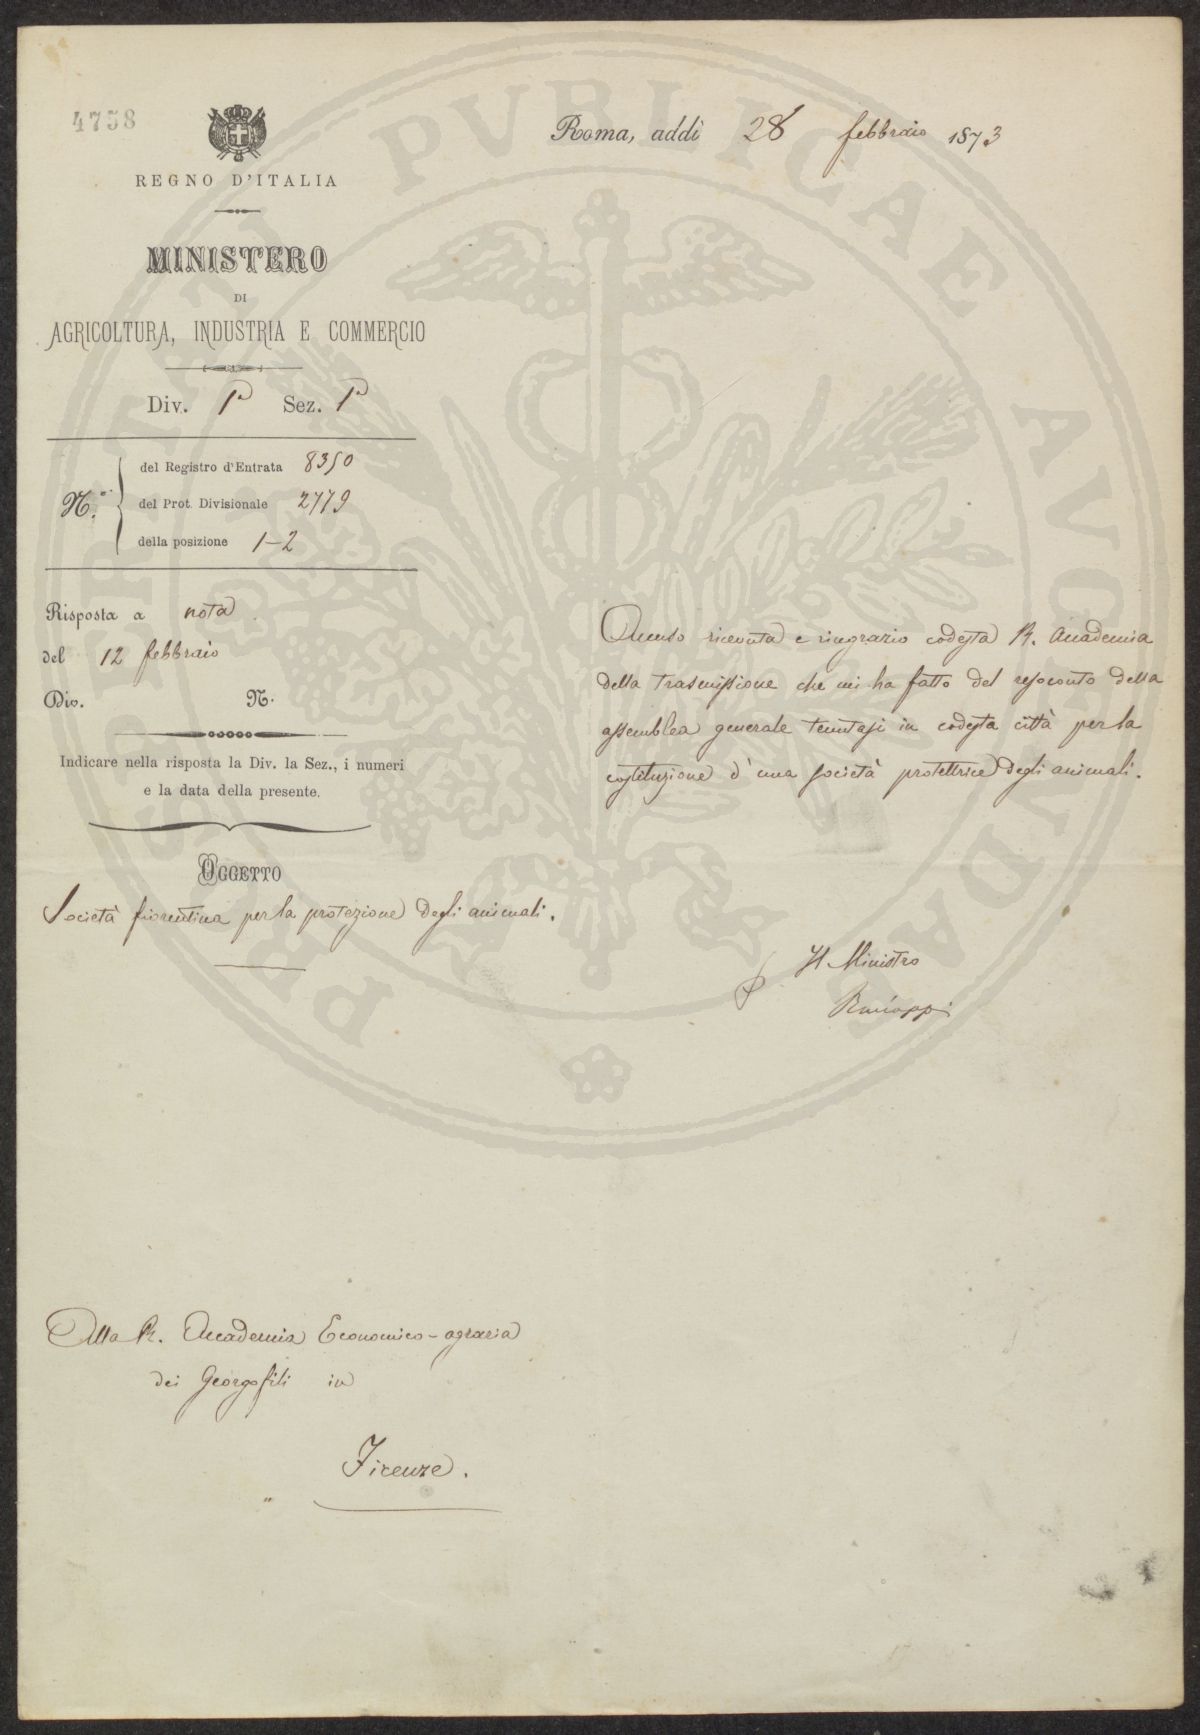 4758
REGNO D'ITALIA
MINISTERO
DI
AGRICOLTURA, INDUSTRIA E COMMERCIO
Div. 1ª Sez. 1ª
N.º
del Registro d'Entrata 8350
del Prot. Divisionale 2779
della posizione 1-2
Risposta a nota
del 12 febbraio
Div. N.
Indicare nella risposta la Div. la Sez., i numeri
e la data della presente.
OGGETTO
Società fiorentina per la protezione degli animali.
Roma, addì 28 febbraio 1873
Accuso ricevuta e ringrazio codesta R. Accademia
della trasmissione che mi ha fatto del resoconto della
assemblea generale tenutasi in codesta città per la
costituzione d'una società protettrice degli animali.
Il Ministro
Alla R. Accademia Economico-agraria
dei Georgofili in
Firenze.
PROSPERITATI PVBLICAE AVGENDAE